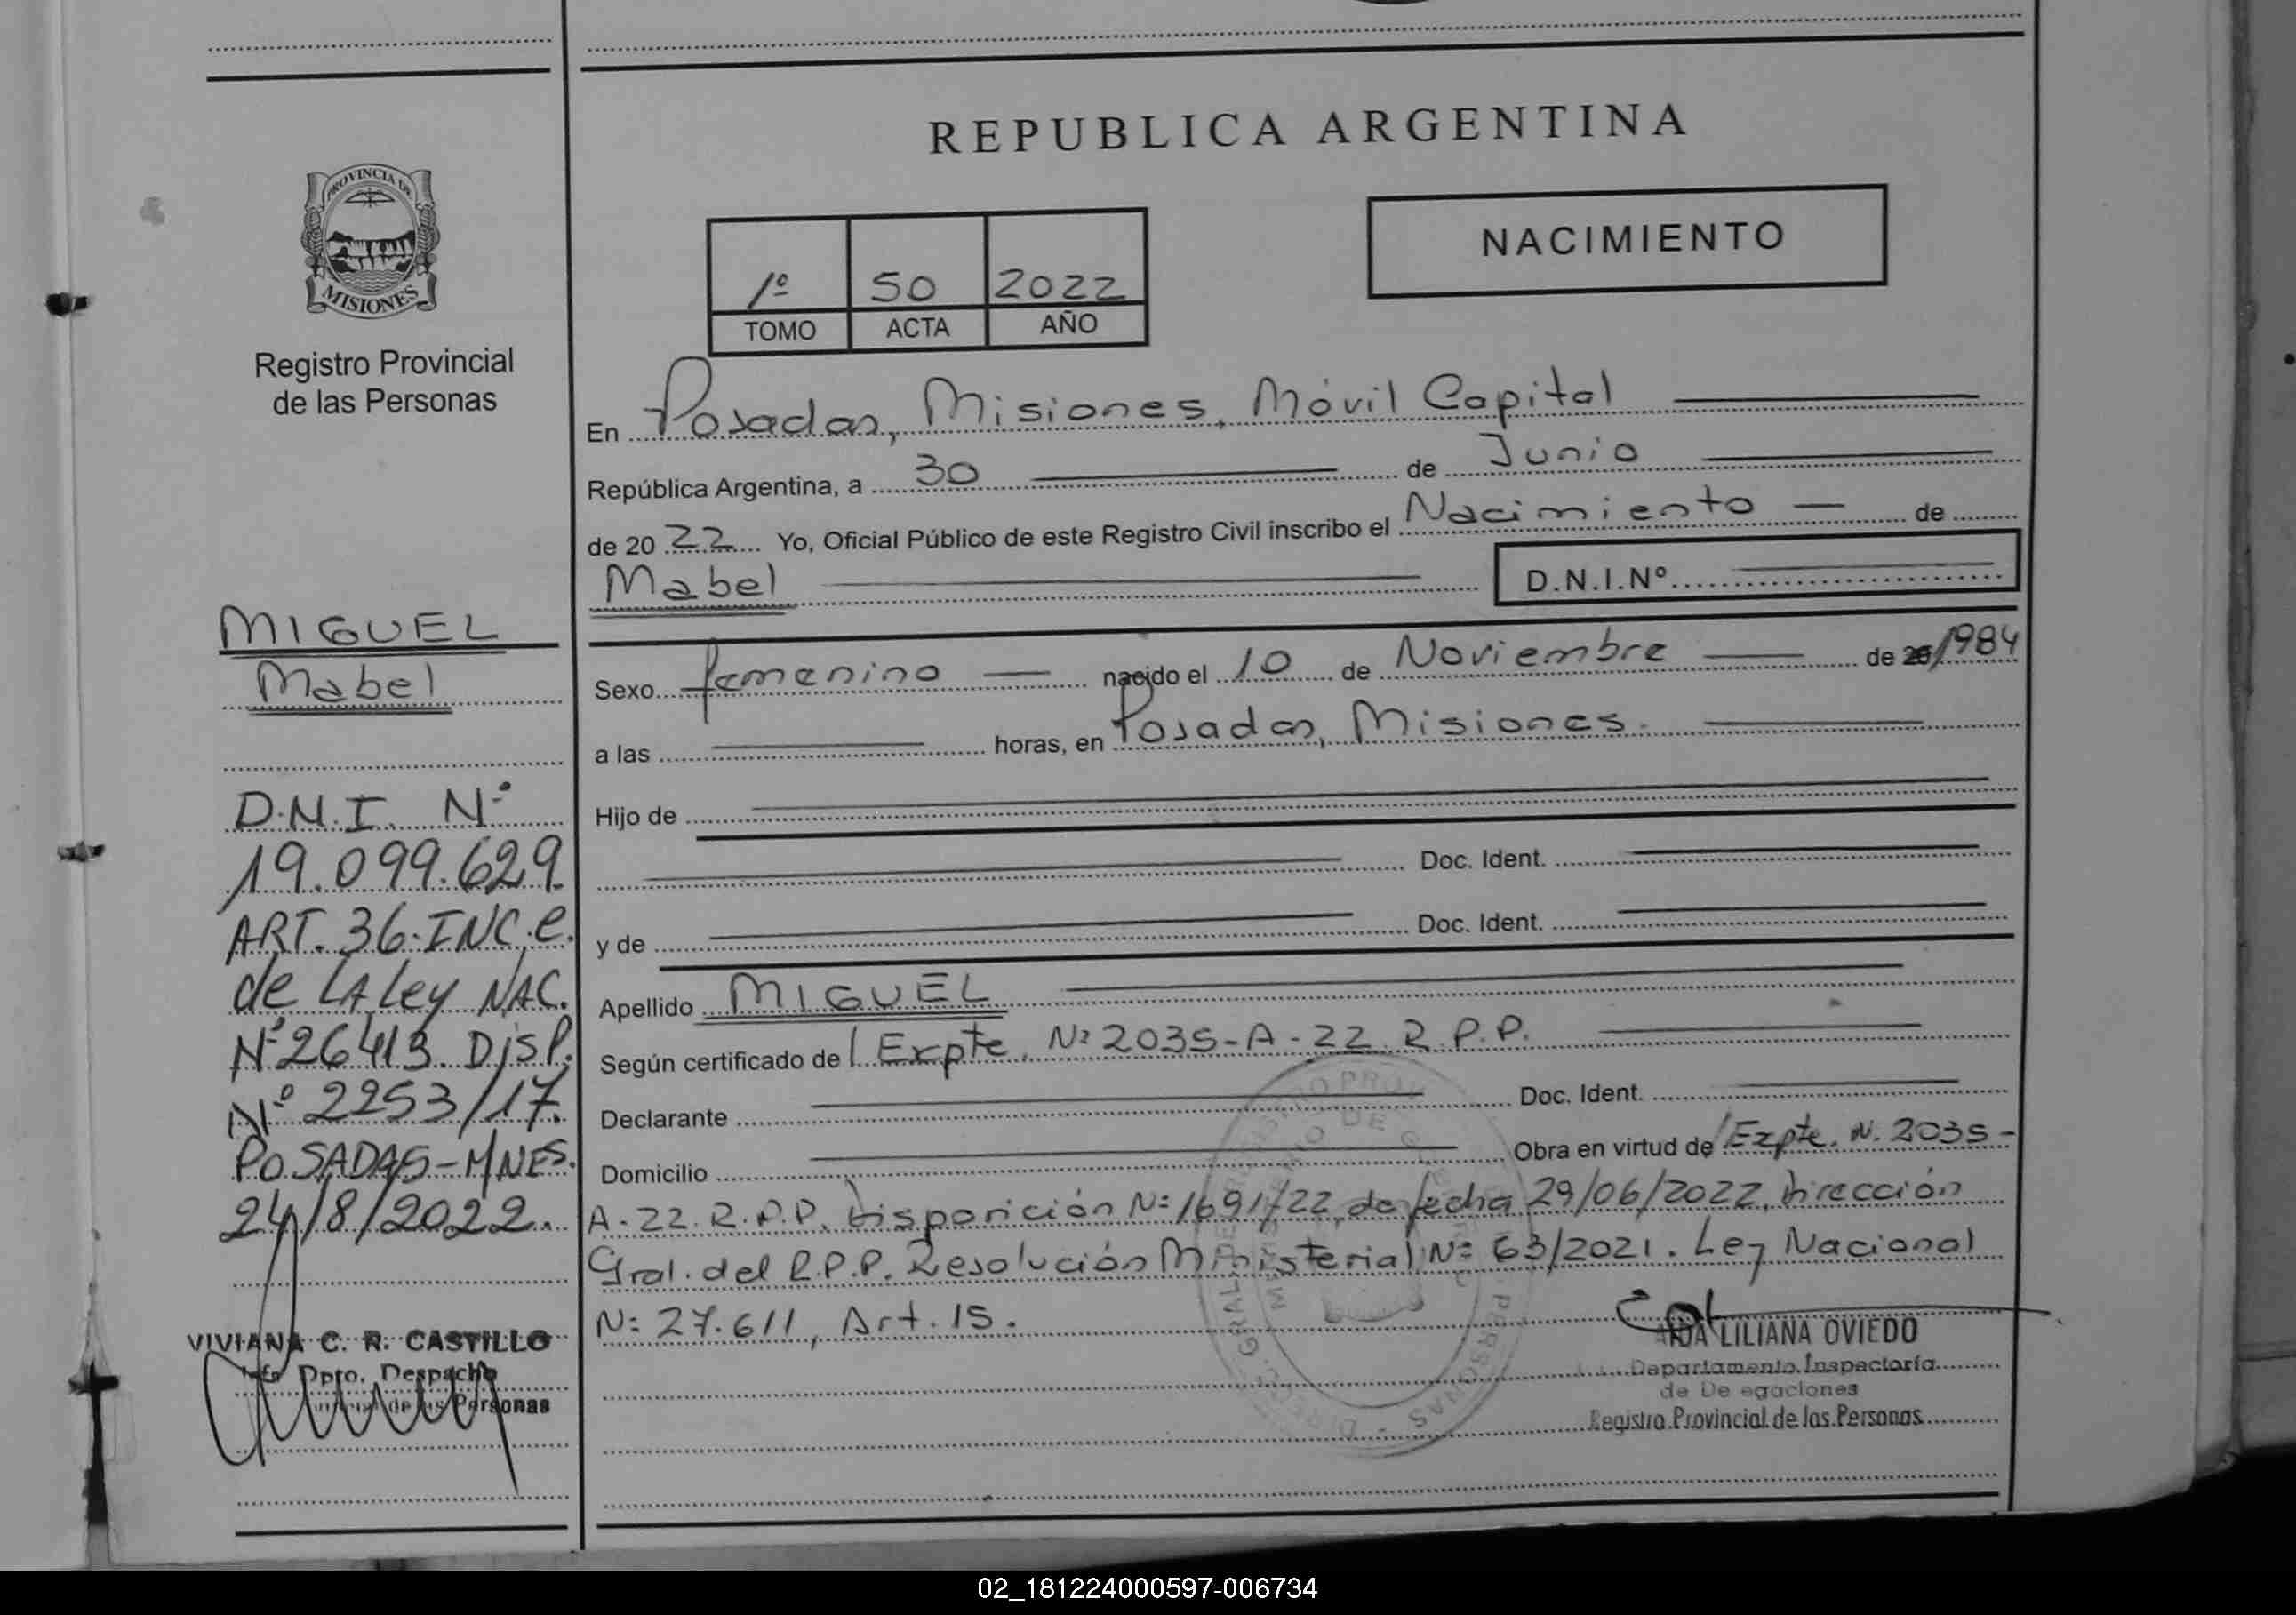 REPUBLICA ARGENTINA
PROVINCIA DE
MISIONES
Registro Provincial
de las Personas
NACIMIENTO
1º 50 2022
TOMO ACTA AÑO
En Posadas, Misiones, Móvil Capital
República Argentina, a 30 de Junio
de 2022 Yo, Oficial Público de este Registro Civil inscribo el Nacimiento de
Mabel D.N.I.Nº
MIGUEL
Mabel
D.N.I. Nº
19.099.629
ART. 36. INC. e.
de LA Ley NAC.
Nº 26413. Disp.
Nº 2253/17.
POSADAS-MNES.
24/8/2022.
VIVIANA C. R. CASTILLO
Dpto. Despacho
Personas
Sexo femenino nacido el 10 de Noviembre de 1984
a las horas, en Posadas, Misiones.
Hijo de
Doc. Ident.
y de Doc. Ident.
Apellido MIGUEL
Según certificado de Expte. Nº 2035-A-22 R.P.P.
Declarante Doc. Ident.
Domicilio Obra en virtud de Expte. N. 2035-
A-22.R.P.P. Disposición Nº 1691/22, de fecha 29/06/2022, Dirección
Gral. del R.P.P. Resolución Ministerial Nº 63/2021. Ley Nacional
Nº 27.611, Art. 15.
LILIANA OVIEDO
Departamento Inspectoría
de De egaciones
Registro Provincial de las Personas
02_181224000597-006734